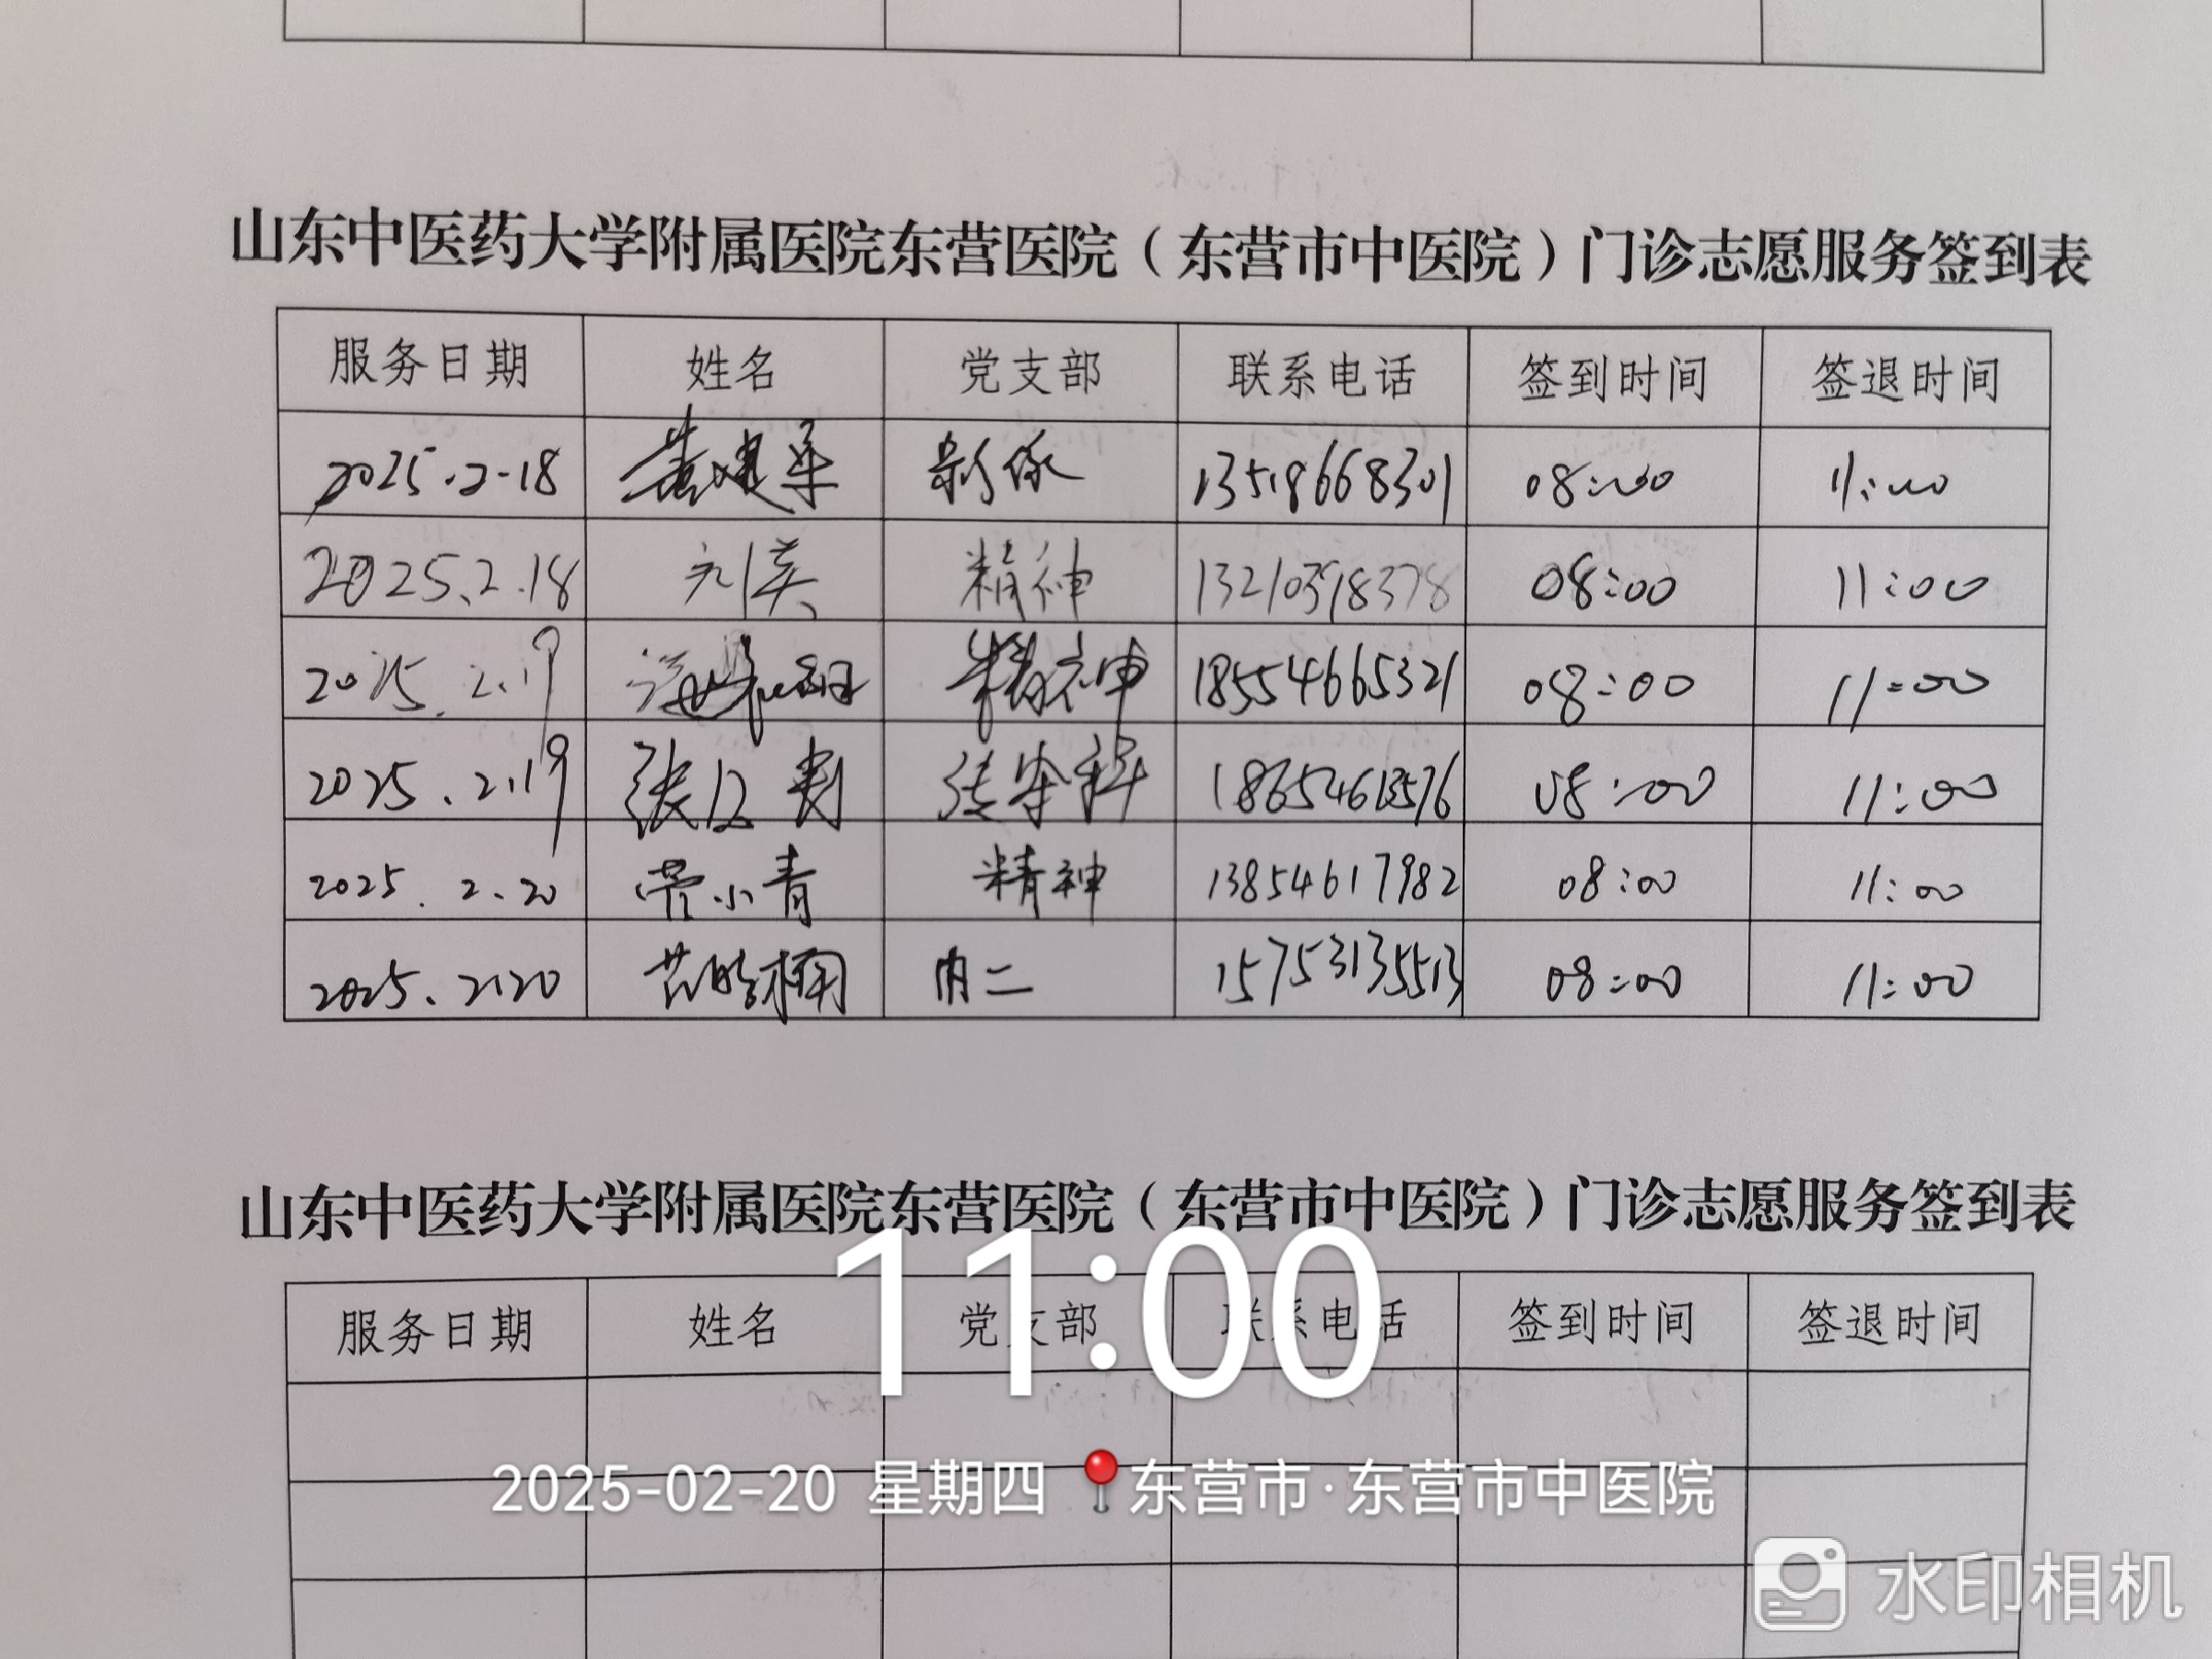 山东中医药大学附属医院东营医院（东营市中医院）门诊志愿服务签到表
服务日期 姓名 党支部 联系电话 签到时间 签退时间
2025.2-18 黄建军 影像 13518668301 08:00 11:00
2025.2.18 精神 13210398378 08:00 11:00
2025.2.19 精神 18554665321 08:00 11:00
2025.2.19 张 传染科 18654613576 08:00 11:00
2025.2.20 菅小青 精神 13854617982 08:00 11:00
2025.2.20 楠 内二 15753135513 08:00 11:00
山东中医药大学附属医院东营医院（东营市中医院）门诊志愿服务签到表
11:00
服务日期 姓名 党支部 联系电话 签到时间 签退时间
2025-02-20 星期四 东营市·东营市中医院
水印相机